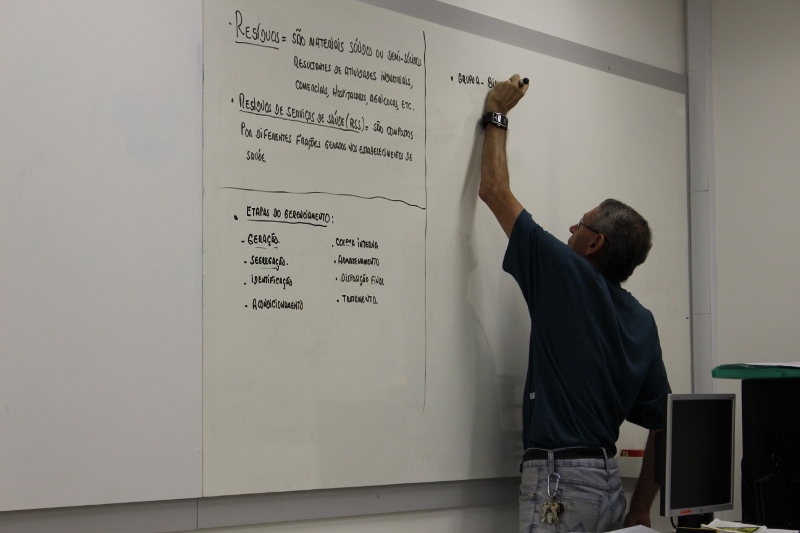 • RESÍDUOS = SÃO MATERIAIS SÓLIDOS OU SEMI-SÓLIDOS
RESULTANTES DE ATIVIDADES INDUSTRIAIS,
COMERCIAIS, HOSPITALARES, AGRÍCOLAS, ETC.
• RESÍDUOS DE SERVIÇOS DE SAÚDE (RSS) = SÃO COMPOSTOS
POR DIFERENTES FRAÇÕES GERADOS NOS ESTABELECIMENTOS DE
SAÚDE.
• ETAPAS DO GERENCIAMENTO:
- GERAÇÃO
- SEGREGAÇÃO.
- IDENTIFICAÇÃO
- ACONDICIONAMENTO
. COLETA INTERNA
. ARMAZENAMENTO
. DISPOSIÇÃO FINAL
. TRATAMENTO.
• GRUPO A -